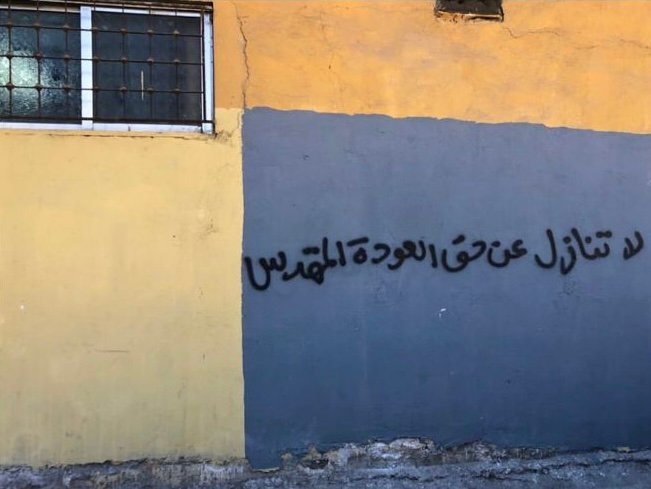 لا تنازل عن حق العودة المقدس